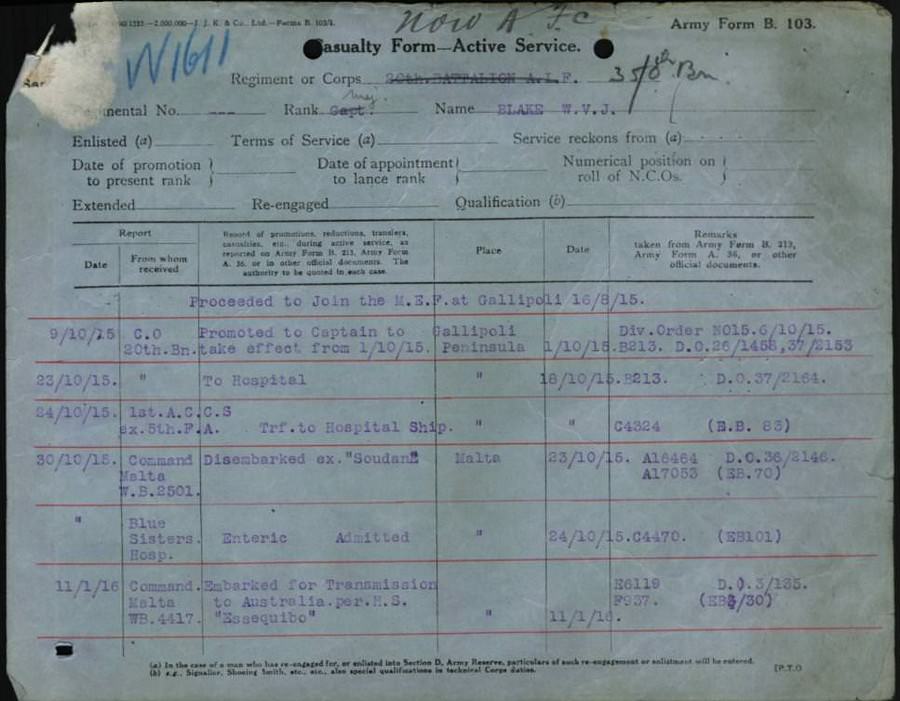 1313.—2,000,000—J. J. K. & Co., Ltd.—Forms B. 103/1.
Now A F C
Army Form B. 103.
W1611
Casualty Form—Active Service.
Regiment or Corps 20th.BATTALION A.I.F. 35/8th Bn
mental No. --- Rank Capt. Maj. Name BLAKE W.V.J.
Enlisted (a) Terms of Service (a) Service reckons from (a)
Date of promotion to present rank
Date of appointment to lance rank
Numerical position on roll of N.C.Os.
Extended Re-engaged Qualification (b)
Report
Date
From whom received
Record of promotions, reductions, transfers,
casualties, etc., during active service, as
reported on Army Form B. 213, Army Form
A. 36, or in other official documents. The
authority to be quoted in each case.
Place
Date
Remarks
taken from Army Form B. 213,
Army Form A. 36, or other
official documents.
Proceeded to Join the M.E.F.at Gallipoli 16/8/15.
9/10/15 C.O Promoted to Captain to Gallipoli Div.Order NO15.6/10/15.
20th.Bn. take effect from 1/10/15. Peninsula 1/10/15. B213. D.O.26/1458,37/2153
23/10/15. " To Hospital " 18/10/15. B213. D.O.37/2164.
24/10/15. 1st.A.C.C.S
ex.5th.F.A. Trf.to Hospital Ship. " " C4324 (E.B. 83)
30/10/15. Command Disembarked ex."Soudan" Malta 23/10/15. A16464 D.O.36/2146.
Malta A17053 (EB.70)
W.B.2501.
" Blue
Sisters. Enteric Admitted " 24/10/15. C4470. (EB101)
Hosp.
11/1/16 Command. Embarked for Transmission E6119 D.O.3/135.
Malta to Australia.per.H.S. F937. (EB3/30)
WB.4417. "Essequibo" " 11/1/16.
(a) In the case of a man who has re-engaged for, or enlisted into Section D, Army Reserve, particulars of such re-engagement or enlistment will be entered.
(b) e.g., Signaller, Shoeing Smith, etc., etc., also special qualifications in technical Corps duties.
[P.T.O